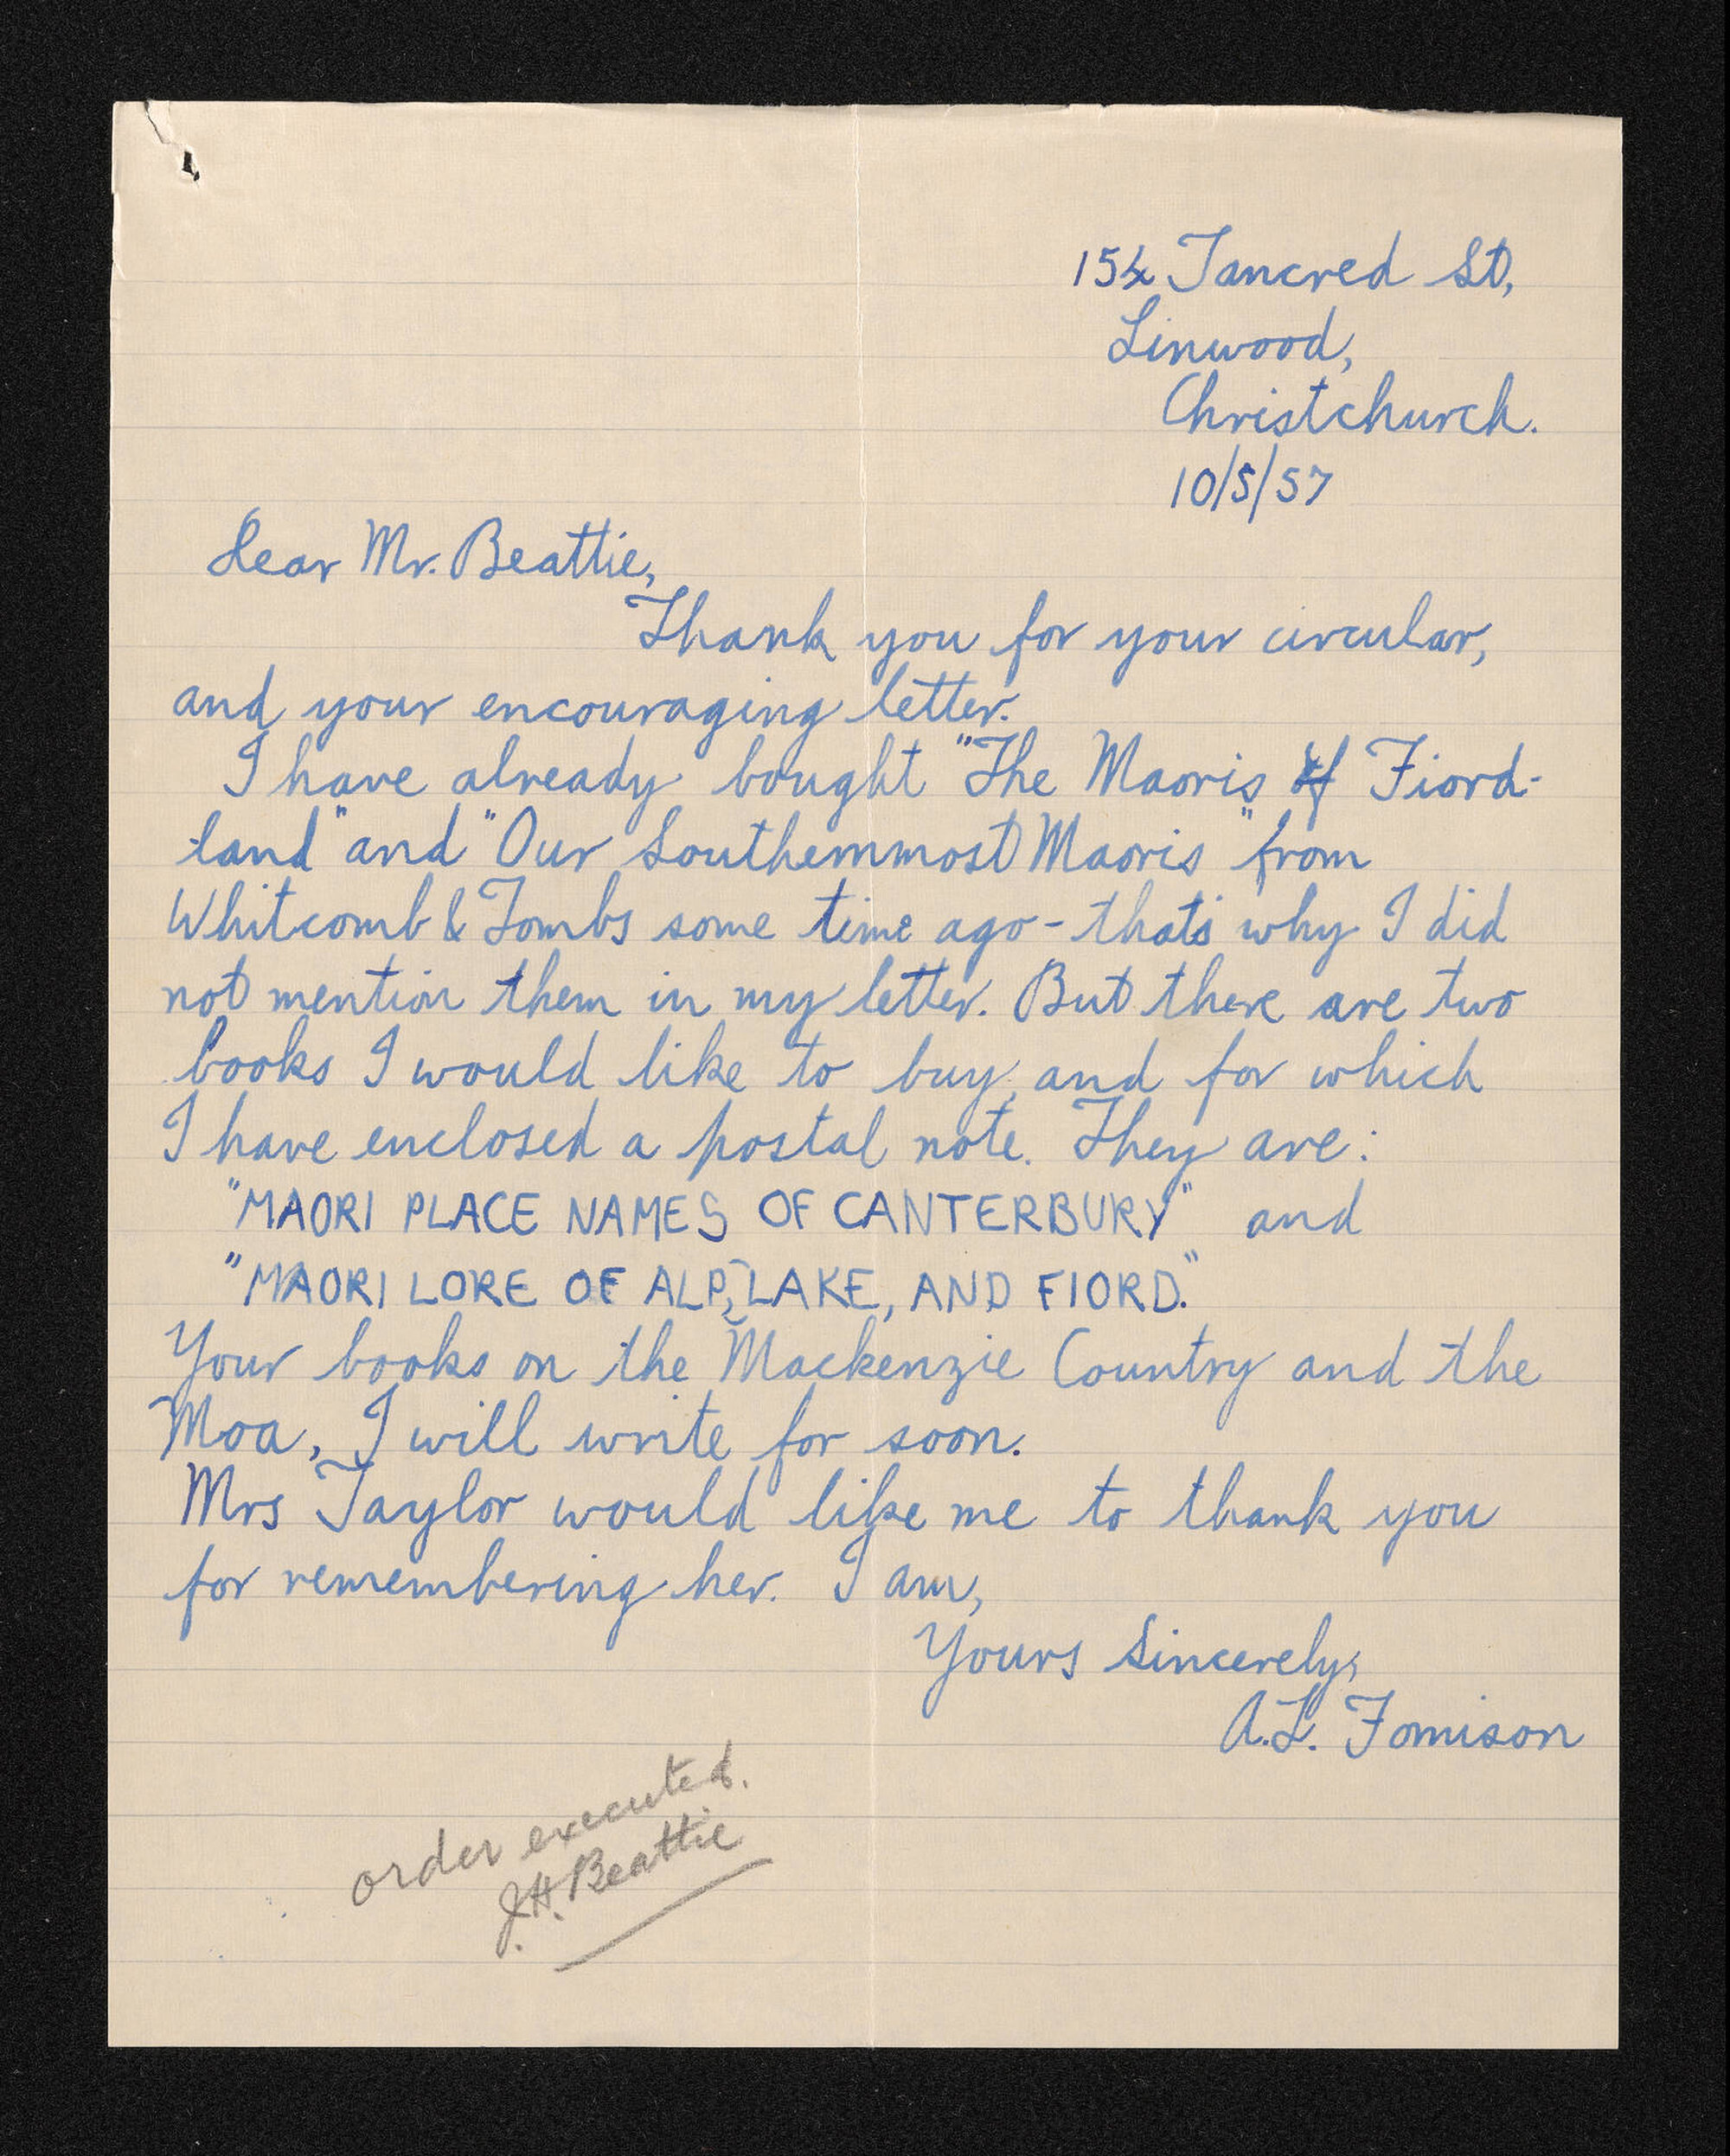 154 Tancred St,
Linwood,
Christchurch.
10/5/57
Dear Mr. Beattie,
Thank you for your circular,
and your encouraging letter.
I have already bought "The Maoris of Fiord-
land" and "Our Southernmost Maoris" from
Whitcomb & Tombs some time ago - that's why I did
not mention them in my letter. But there are two
books I would like to buy, and for which
I have enclosed a postal note. They are:
"MAORI PLACE NAMES OF CANTERBURY" and
"MAORI LORE OF ALP, LAKE, AND FIORD."
Your books on the Mackenzie Country and the
Moa, I will write for soon.
Mrs Taylor would like me to thank you
for remembering her. I am,
Yours Sincerely,
A.L. Fomison
order executed.
J.H. Beattie